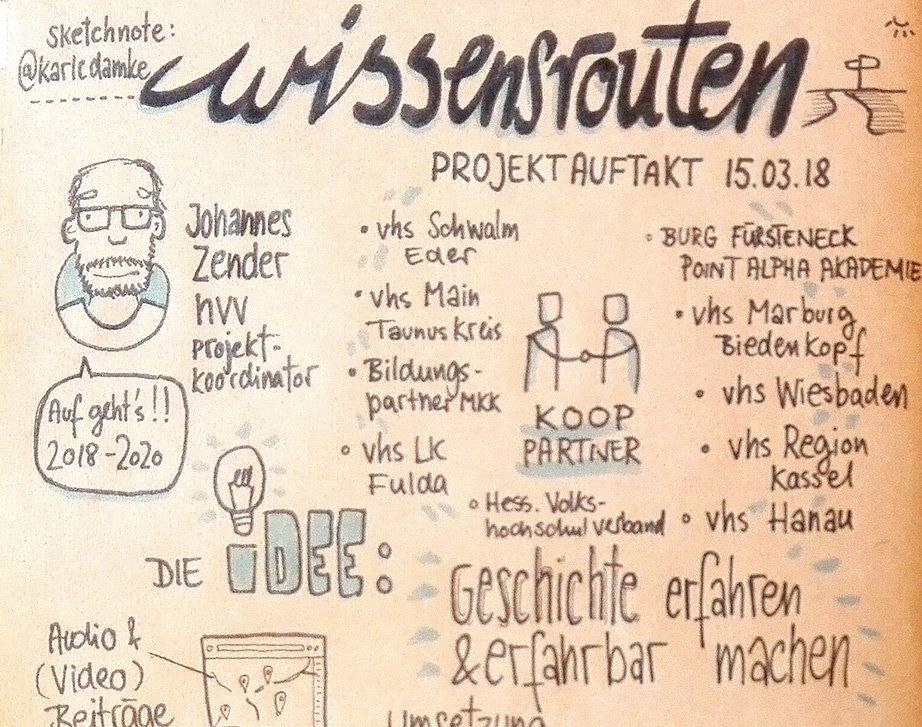 sketchnote:
@karlcdamke
wissensrouten
PROJEKTAUFTAKT 15.03.18
Johannes
Zender
hvv
projekt-
koordinator
Auf geht's!!
2018-2020
• vhs Schwalm
Eder
• vhs Main
Taunus Kreis
• Bildungs-
partner MKK
• vhs LK
Fulda
• Hess. Volks-
hochschulverband
KOOP
PARTNER
• BURG FÜRSTENECK
POINT ALPHA AKADEMIE
• vhs Marburg
Biedenkopf
• vhs Wiesbaden
• vhs Region
Kassel
• vhs Hanau
DIE iDEE:
Geschichte erfahren
& erfahrbar machen
Audio &
(Video)
Beiträge
Umsetzung